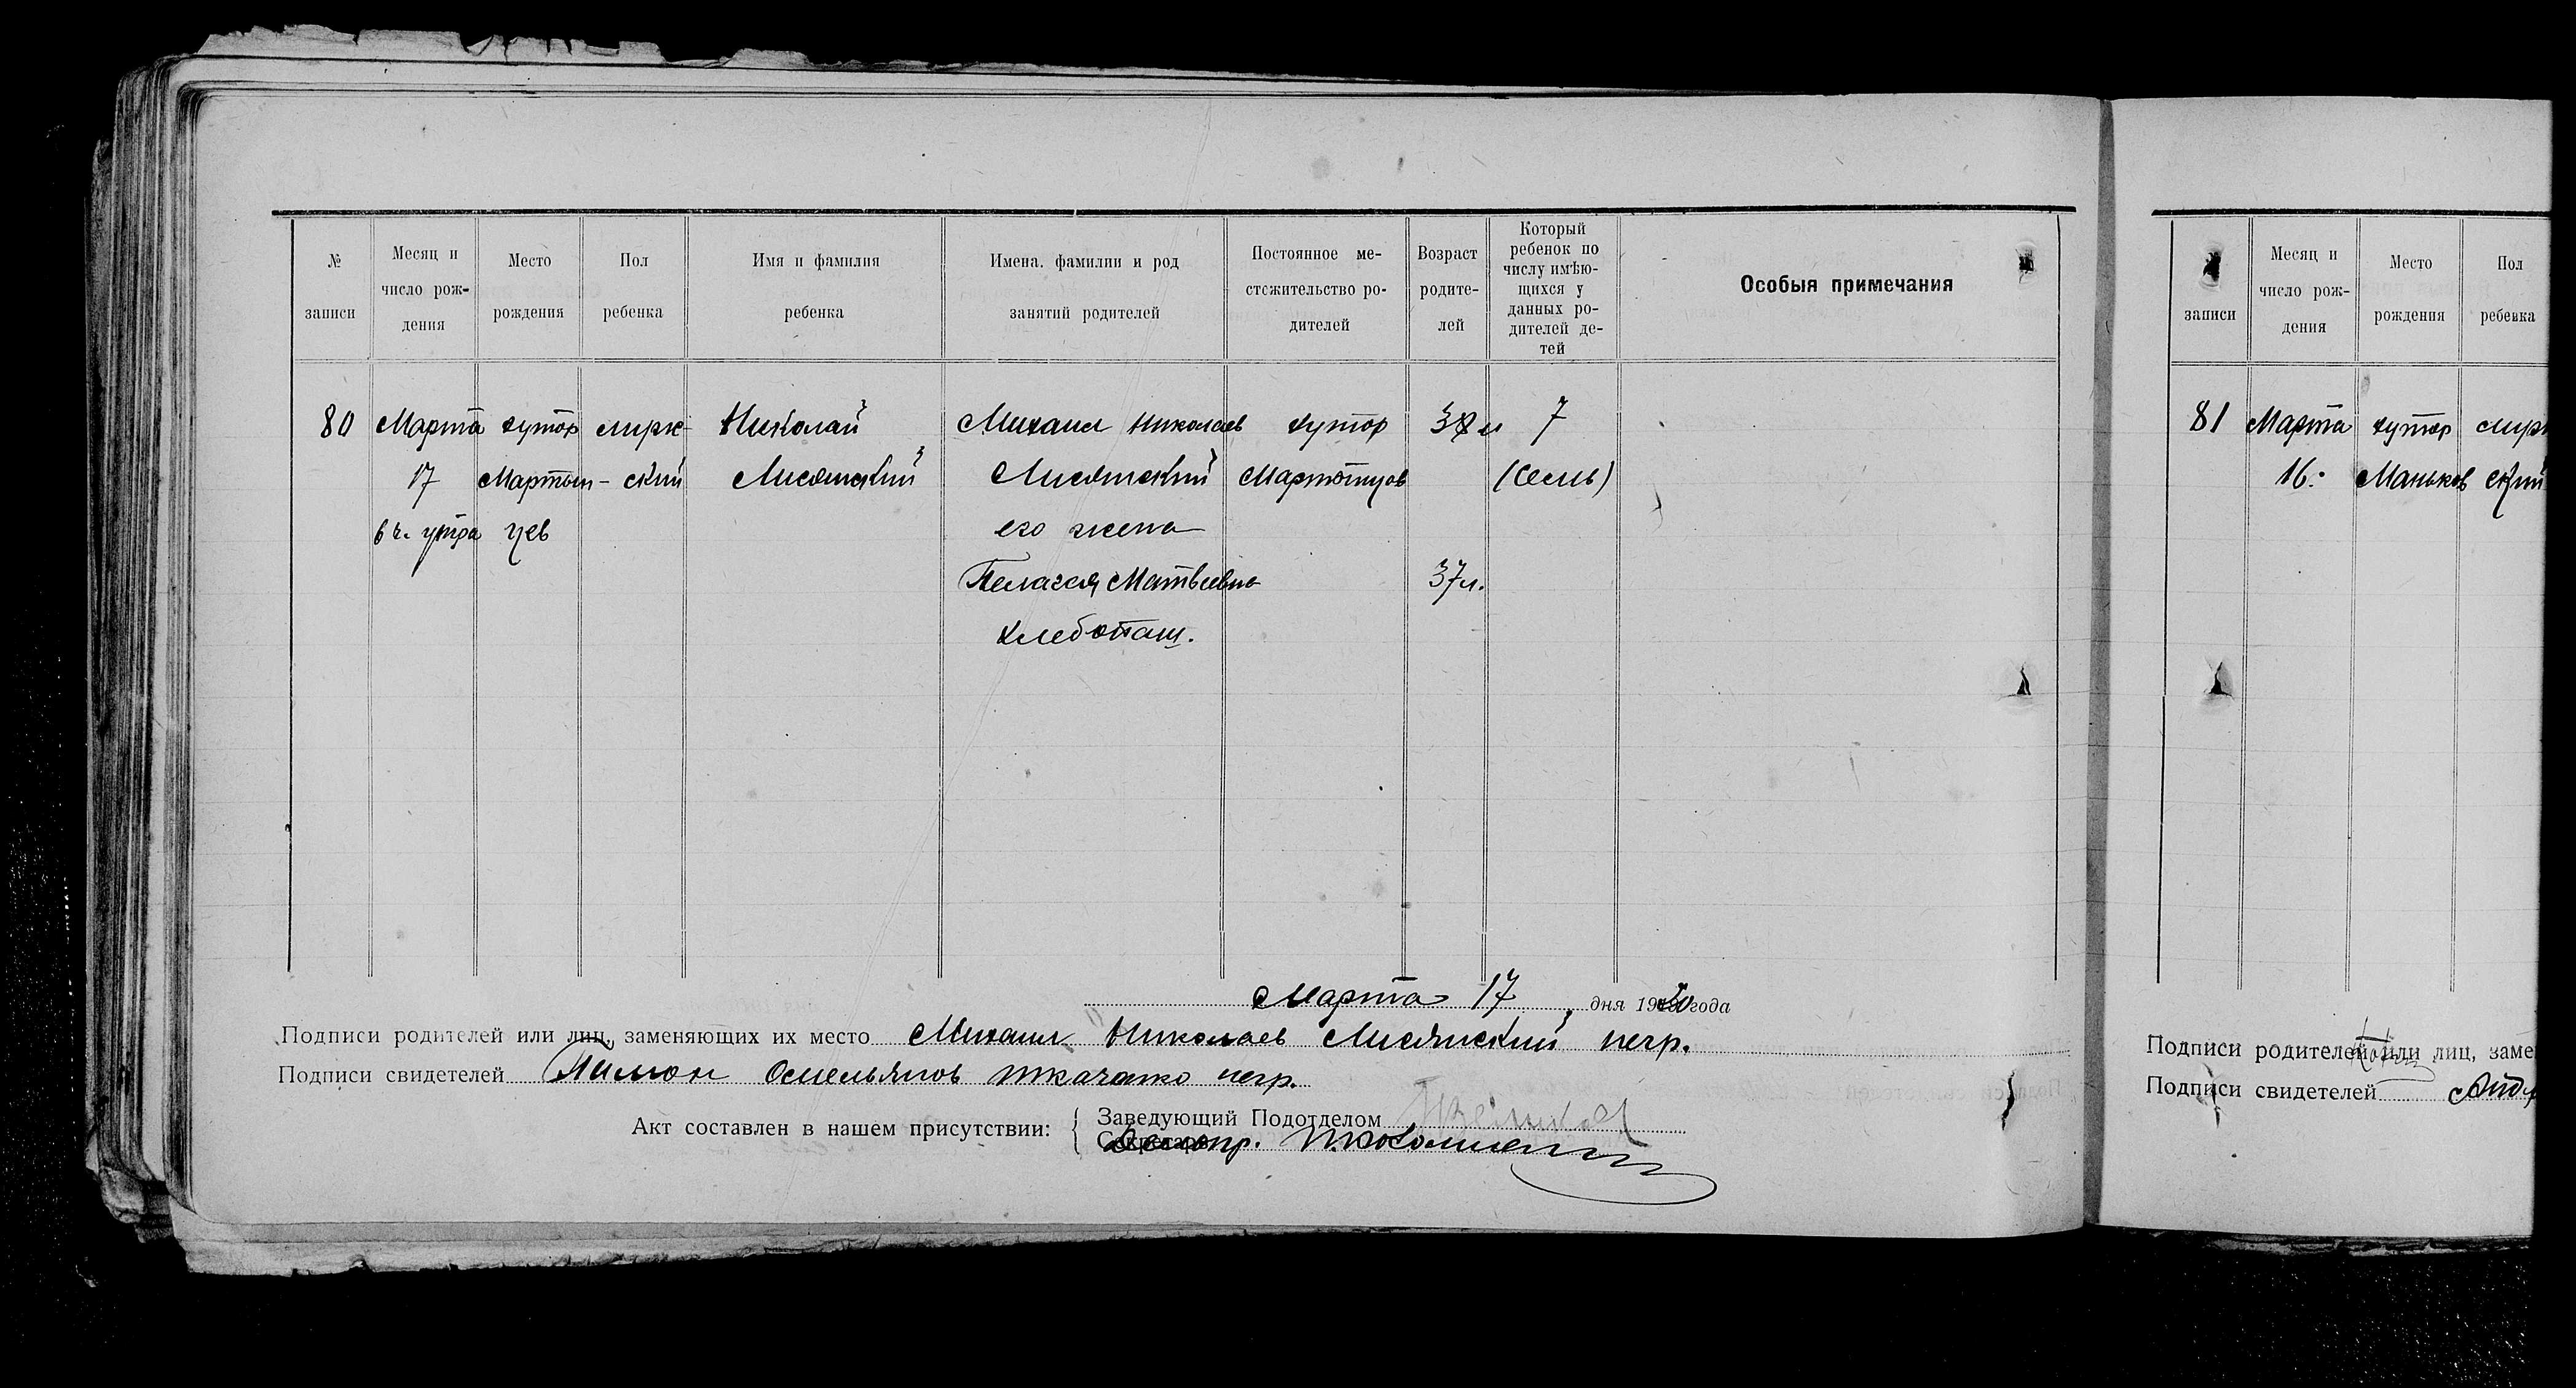 № записи
Месяц и число рождения
Место рождения
Пол ребенка
Имя и фамилия ребенка
Имена, фамилии и род занятий родителей
Постоянное местожительство родителей
Возраст родителей
Который ребенок по числу имѣющихся у данных родителей детей
Особыя примечания
80 Марта хутор муж- Николай Михаил Николаев хутор 38 л 7
17 Мартын- ский Лисянский Лисянский Мартынцов (семь)
6 ч. утра цев его жена
Пелагея Матвеевна 37 л.
хлебопаш.
Марта 17 дня 1920 года
Подписи родителей или лиц, заменяющих их место Михаил Николаев Лисянский негр.
Подписи свидетелей Пимон Омельянов Ткаченко негр.
Акт составлен в нашем присутствии:
Заведующий Подотделом
Секретарь
№ записи
Месяц и число рождения
Место рождения
Пол ребенка
81 Марта хутор муж
16. Маньков ский
Подписи родителей или лиц, заме
Подписи свидетелей